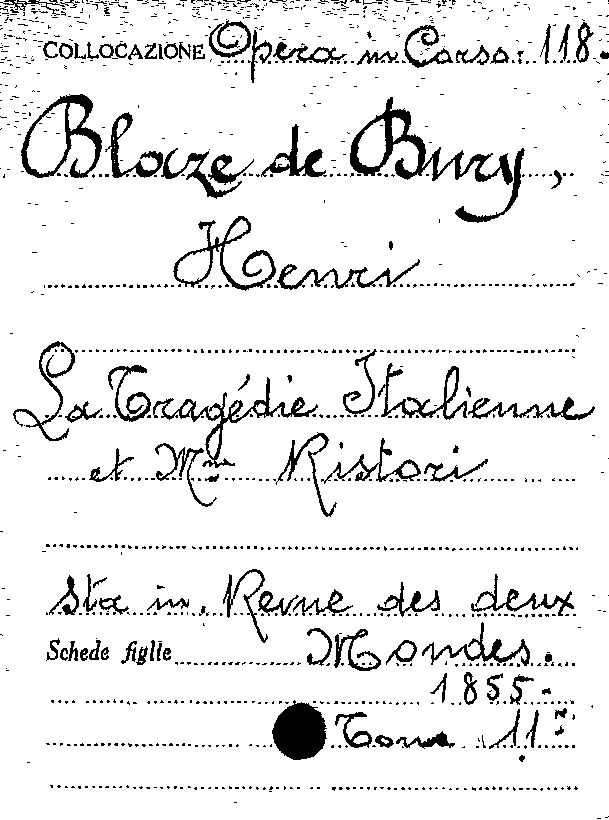 COLLOCAZIONE Opera in Corso: 118.
Blaze de Bury,
Henri
La Tragédie Italienne
et Mme Ristori
Sta in. Revue des deux
Schede figlie Mondes.
1855-
Tome 11